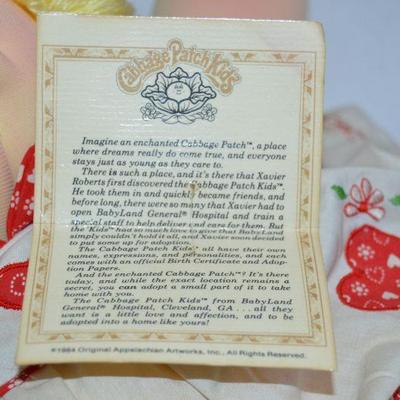 Cabbage Patch Kids™
Imagine an enchanted Cabbage Patch™, a place
where dreams really do come true, and everyone
stays just as young as they care to.
There is such a place, and it's there that Xavier
Roberts first discovered the Cabbage Patch Kids™.
He took them in and quickly became friends, and
before long, there were so many that Xavier had to
open BabyLand General® Hospital and train a
special staff to help deliver and care for them. But
the 'Kids' had so much love to give that BabyLand
simply couldn't hold it all, and Xavier soon decided
to put some up for adoption.
The Cabbage Patch Kids™ all have their own
names, expressions, and personalities, and each
comes with an official Birth Certificate and Adop-
tion Papers.
And the enchanted Cabbage Patch™? It's there
today, and while the exact location remains a
secret, you can adopt a small part of it to take
home with you.
The Cabbage Patch Kids™ from BabyLand
General® Hospital, Cleveland, GA . . . all they
want is a little love and affection, and to be
adopted into a home like yours!
©1984 Original Appalachian Artworks, Inc., All Rights Reserved.